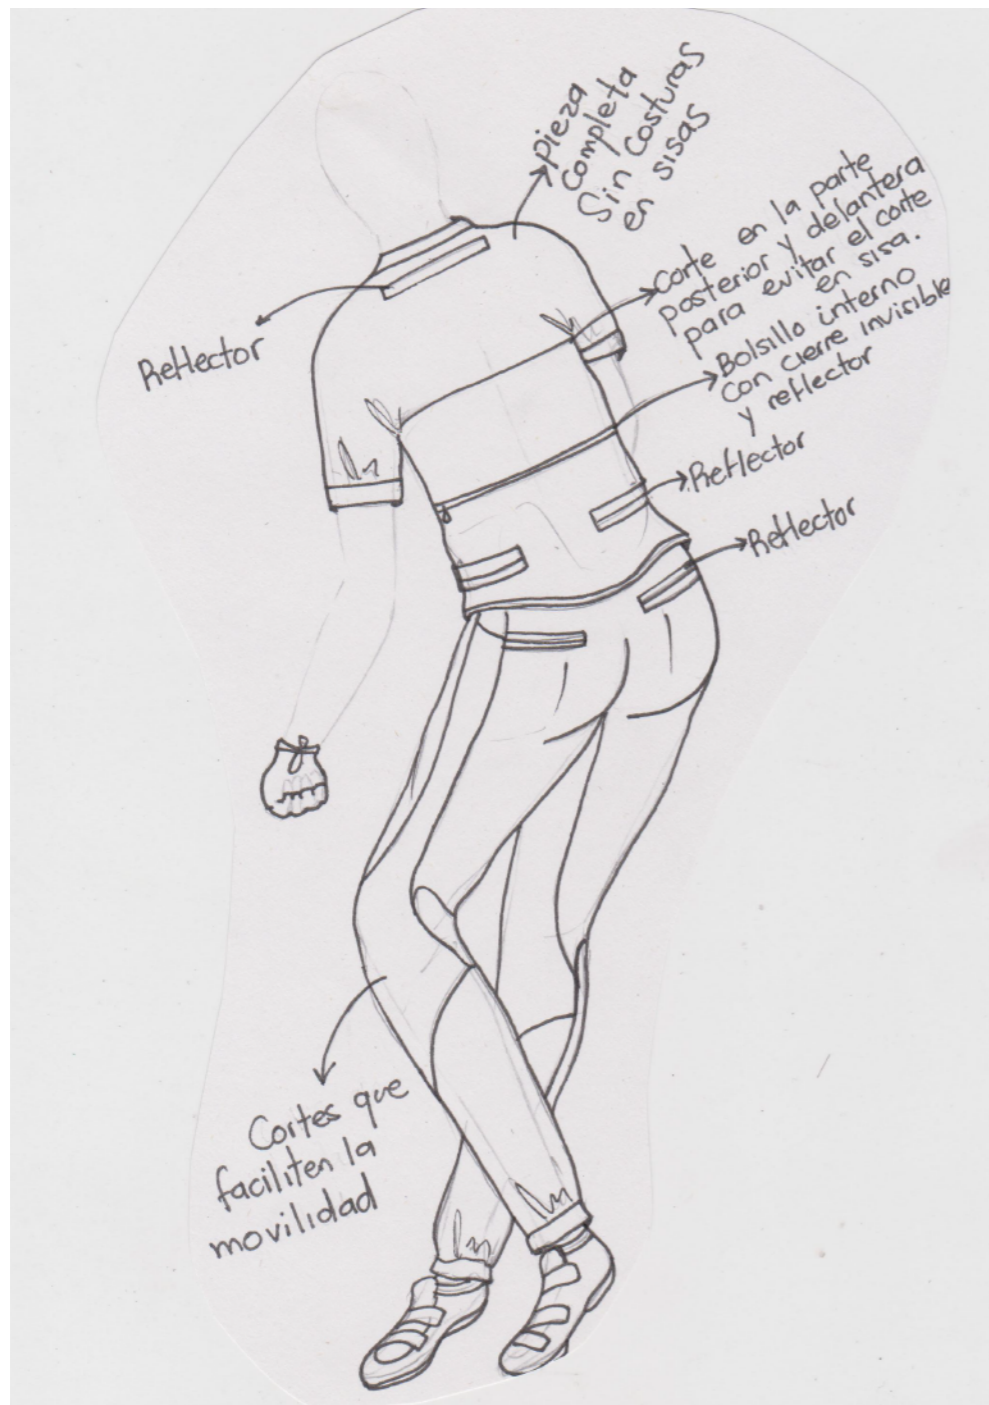 pieza
completa
Sin costuras
en sisas
Corte en la parte
posterior y delantera
para evitar el corte
en sisa.
Bolsillo interno
con cierre invisible
y reflector
Reflector
Reflector
Reflector
Cortes que
faciliten la
movilidad